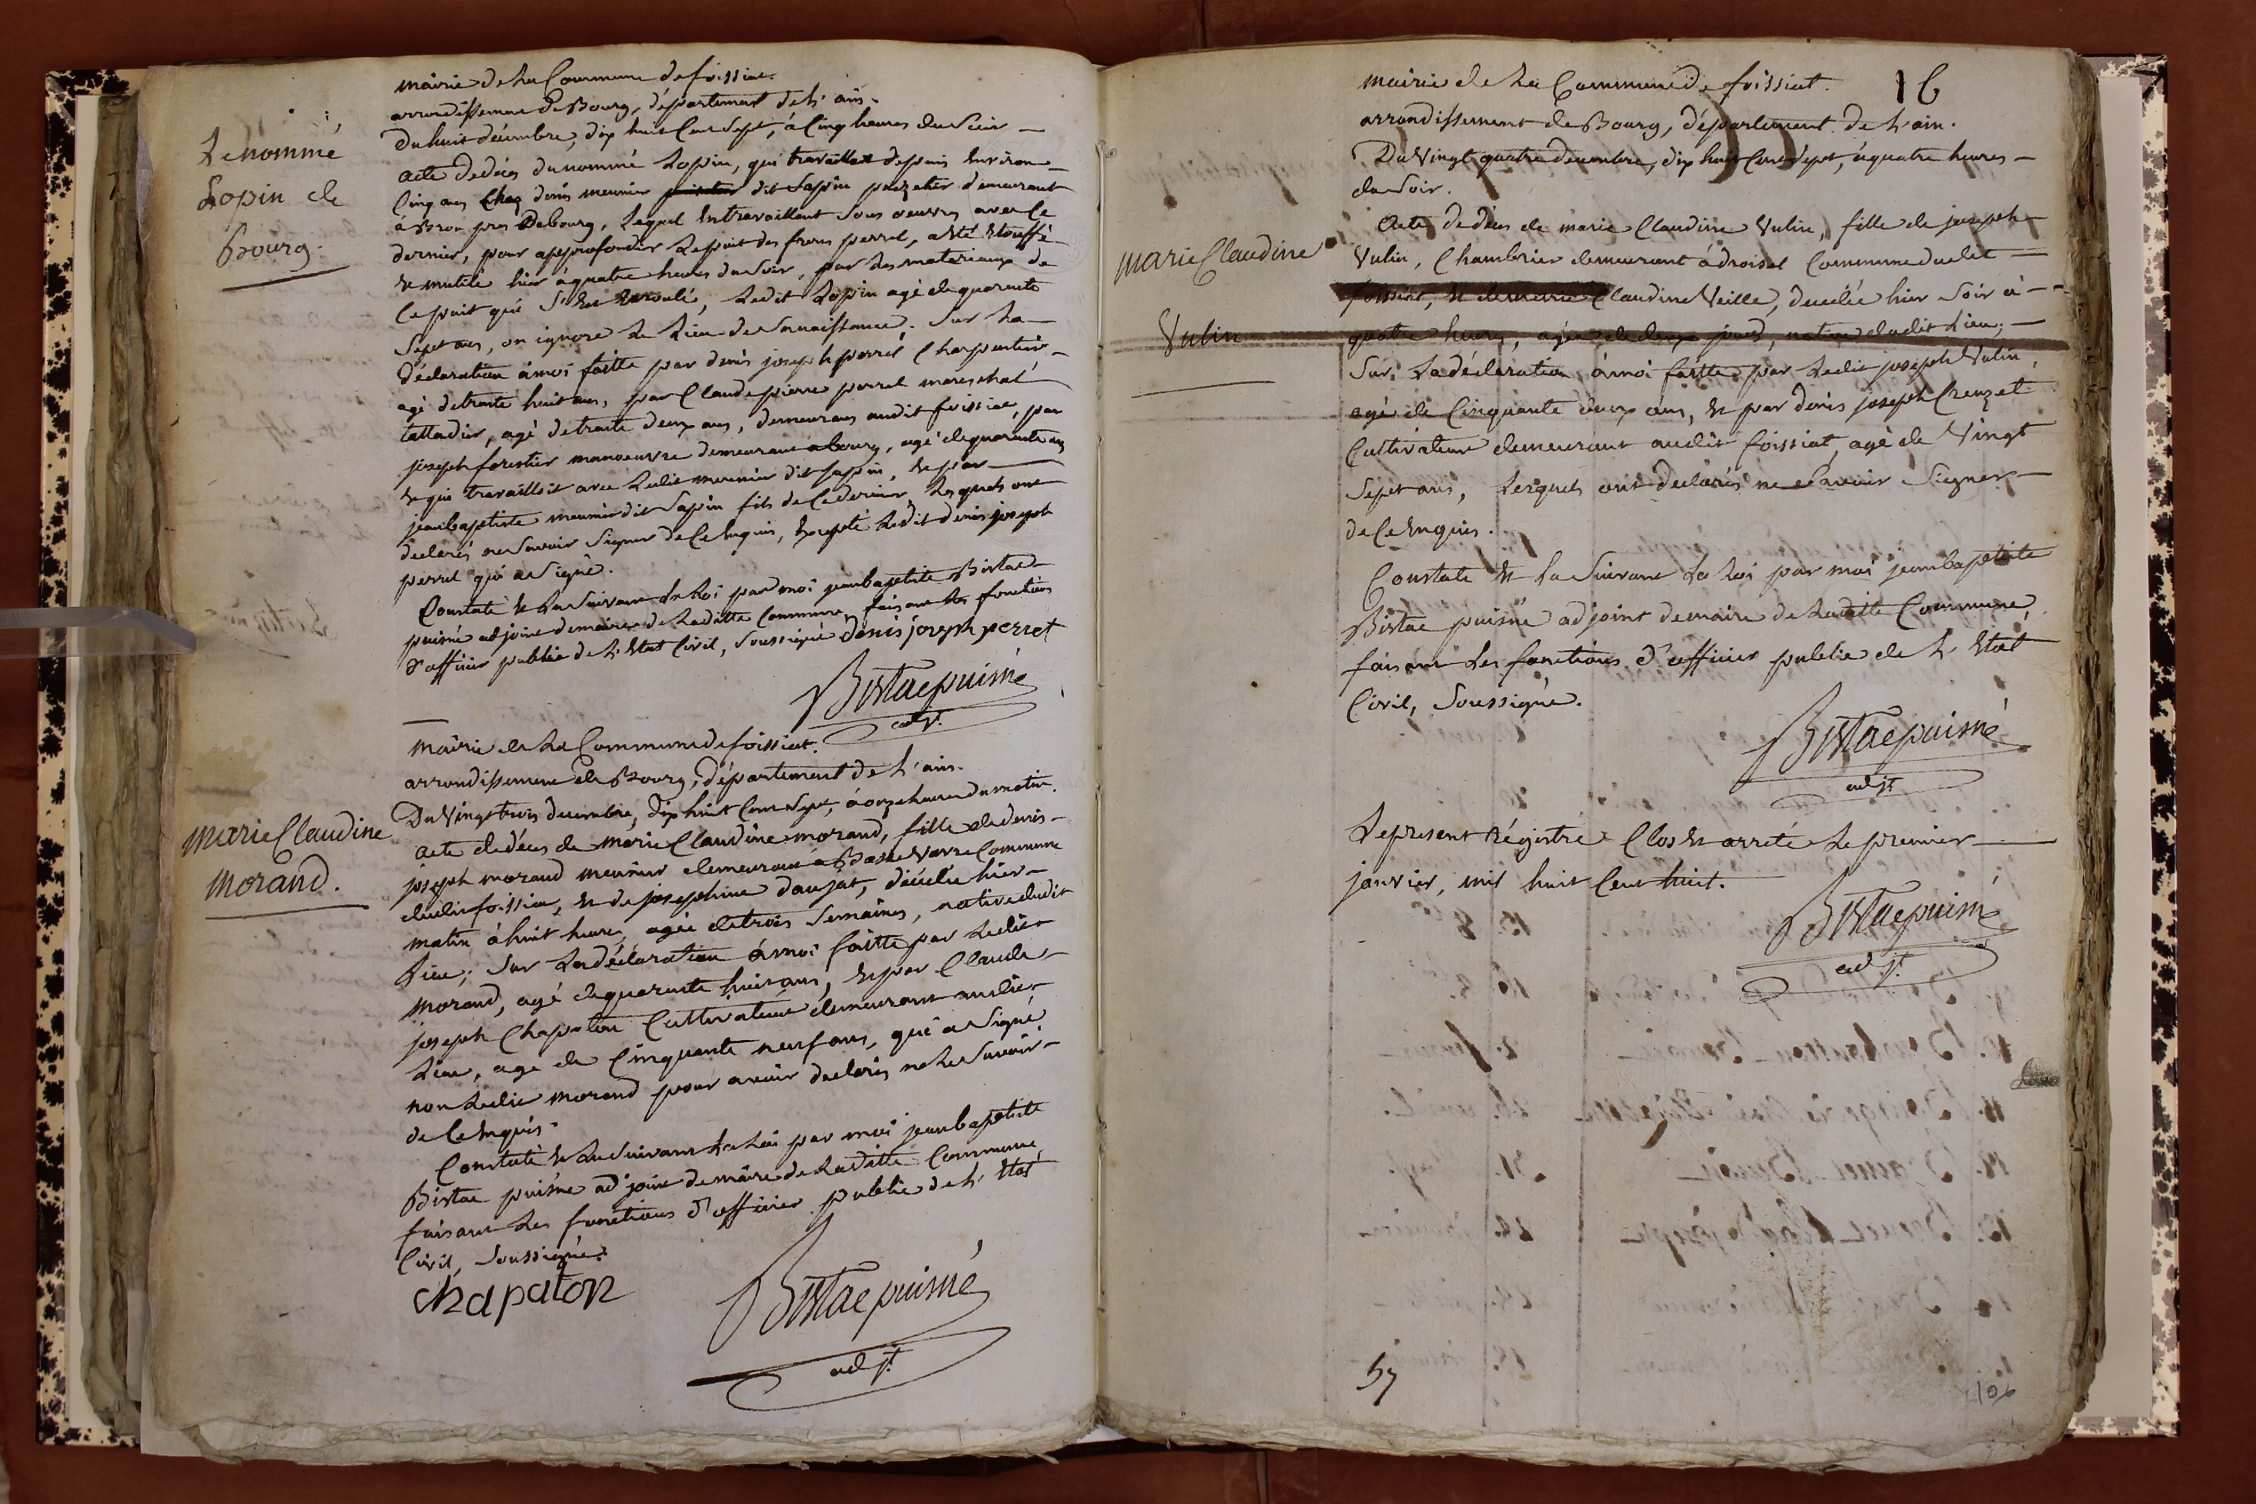 mairie de La Commune de foissiat.
arrondissement de Bourg, département de L'ain.
Du huit décembre, dix huit Cent Sept, à Cinq heures du Soir —
Le nommé
Lopin de
Bourg.
acte de décès du nommé Lopin, qui travaillat depuis Environ —
Cinq ans Chez denis meunier dit Sapin demeurant
à Brou pres De bourg, Lequel En travaillant Sous oeuvres avec Ce
dernier, pour approfondir Le puit des freres perret, a été Etouffé
Et mutilé hier à quatre heures du Soir, par Les materiaux de
Ce puit qui S'est Ecroulé, Ledit Lopin agé de quarente
Sept ans, on ignore Le Lieu de Sa naissance. Sur La —
déclaration à moi faitte par denis joseph perret Charpentier —
agé de trante huit ans, par Claude pierre perret mareschal
tallandier, agé de trante deux ans, demeurans audit foissiat, par
joseph forestier manoeuvre demeurant a bourg, agé de quarente ans
Et qui travailloit avec Ledit meunier dit Sapin, Et par —
jean baptiste meunier dit Sapin fils de Ce dernier, Lesquels ont
déclarés ne Savoir Signer de Ce Enquis, Excepté Ledit denis joseph
perret qui a Signé.
Constaté Et La Suivant La Loi par moi jean baptiste Bistac
puisné adjoint de maire de La ditte Commune, faisant Les fonctions
d'officier public de L'Etat Civil, Soussigné denis joseph perret
Bistac puisné
adjt.
mairie de La Commune de foissiat.
arrondissement de Bourg, département de L'ain.
Du Vingt trois decembre, dix huit Cent Sept, à onze heures du matin.
marie Claudine
morand.
acte de décès de marie Claudine morand, fille de denis —
joseph morand meunier demeurant a Basse Vavre Commune
dudit foissiat, Et de josephine daujat, décédée hier —
matin à huit heures, agée de trois Semaines, native dudit
Lieu; Sur La déclaration à moi faitte par Ledit
morand, agé de quarente huit ans, Et par Claude
joseph Chapaton Cultivateur demeurant audit
Lieu, agé de Cinquante neuf ans, qui a Signé,
non Ledit morand pour avoir declaré ne Le Savoir —
de Ce Enquis.
Constaté Et La Suivant La Loi par moi jean baptiste
Bistac puisné adjoint de maire de La ditte Commune
faisant Les fonctions d'officier public de L'Etat
Civil, Soussigné.
chapaton
Bistac puisné
adjt.
16
mairie de La Commune de foissiat.
arrondissement de Bourg, département de L'ain.
Du Vingt quatre decembre, dix huit Cent Sept, à quatre heures —
du Soir.
marie Claudine
Vulin
Acte de déces de marie Claudine Vulin, fille de joseph —
Vulin, Chambrier demeurant à droisel Commune dudit —
foissiat, Et de Claudine Veille, decédée hier Soir à —
quatre heures, agée de deux jours, native dudit Lieu; —
Sur La déclaration à moi faitte par Ledit joseph Vulin,
agé de Cinquante deux ans, Et par denis joseph Creuzet
Cultivateur demeurant audit foissiat, agé de Vingt
Sept ans, Lesquels ont declarés ne Savoir Signer —
de Ce Enquis.
Constaté Et La Suivant La Loi par moi jean baptiste
Bistac puisné adjoint de maire de La ditte Commune,
faisant Les fonctions d'officier public de L'Etat
Civil, Soussigné.
Bistac puisné
adjt.
Le present Régistre Clos Et arreté Le premier —
janvier, mil huit Cent huit.
Bistac puisné
adjt.
57
106